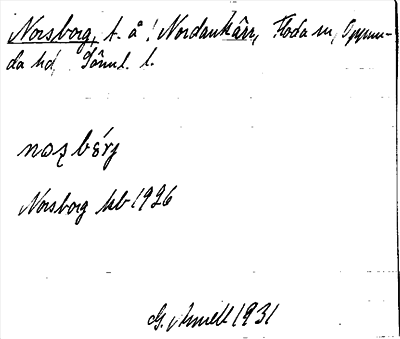 Norsborg, t. å ! Nordankärr, Floda sn, Oppun-
da hd, Söml. l.
nɷʂbǽrj
Norsborg kb 1926
G. Arnell 1931